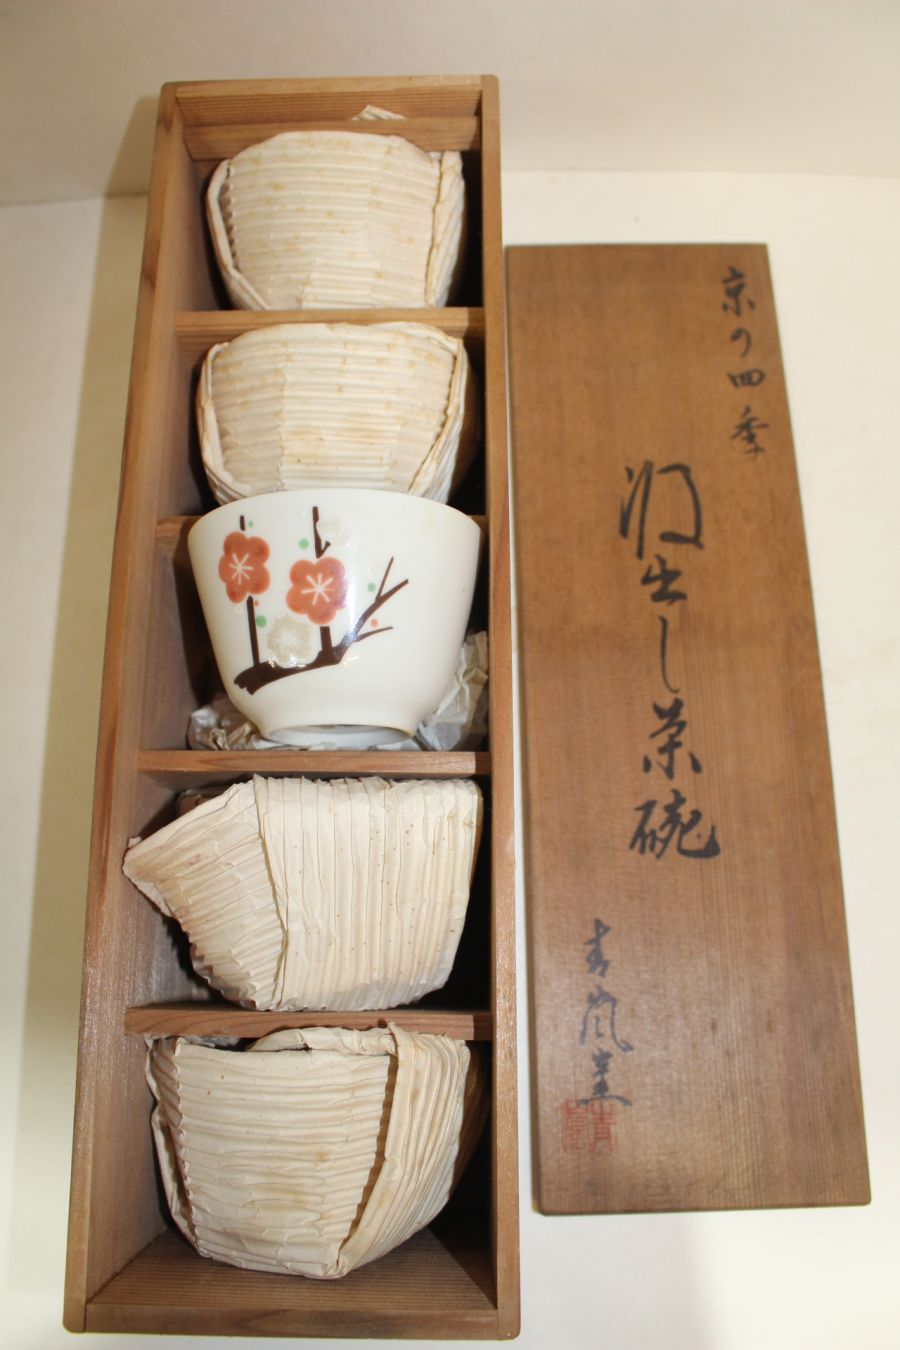 京の四季
汲出し茶碗
青嵐窯
青